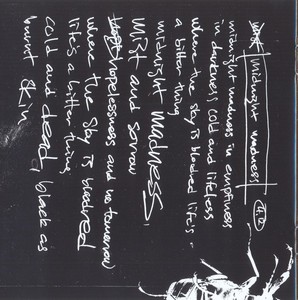 Midnight madness
midnight madness in emptiness
in darkness cold and lifeless
where the sky is bloodred lifes -
a bitter thing
midnight madness,
and sorrow
hopelessness and no tomorrow
where the sky is bloodred
lifes a bitter thing
cold and dead, black as
burnt skin